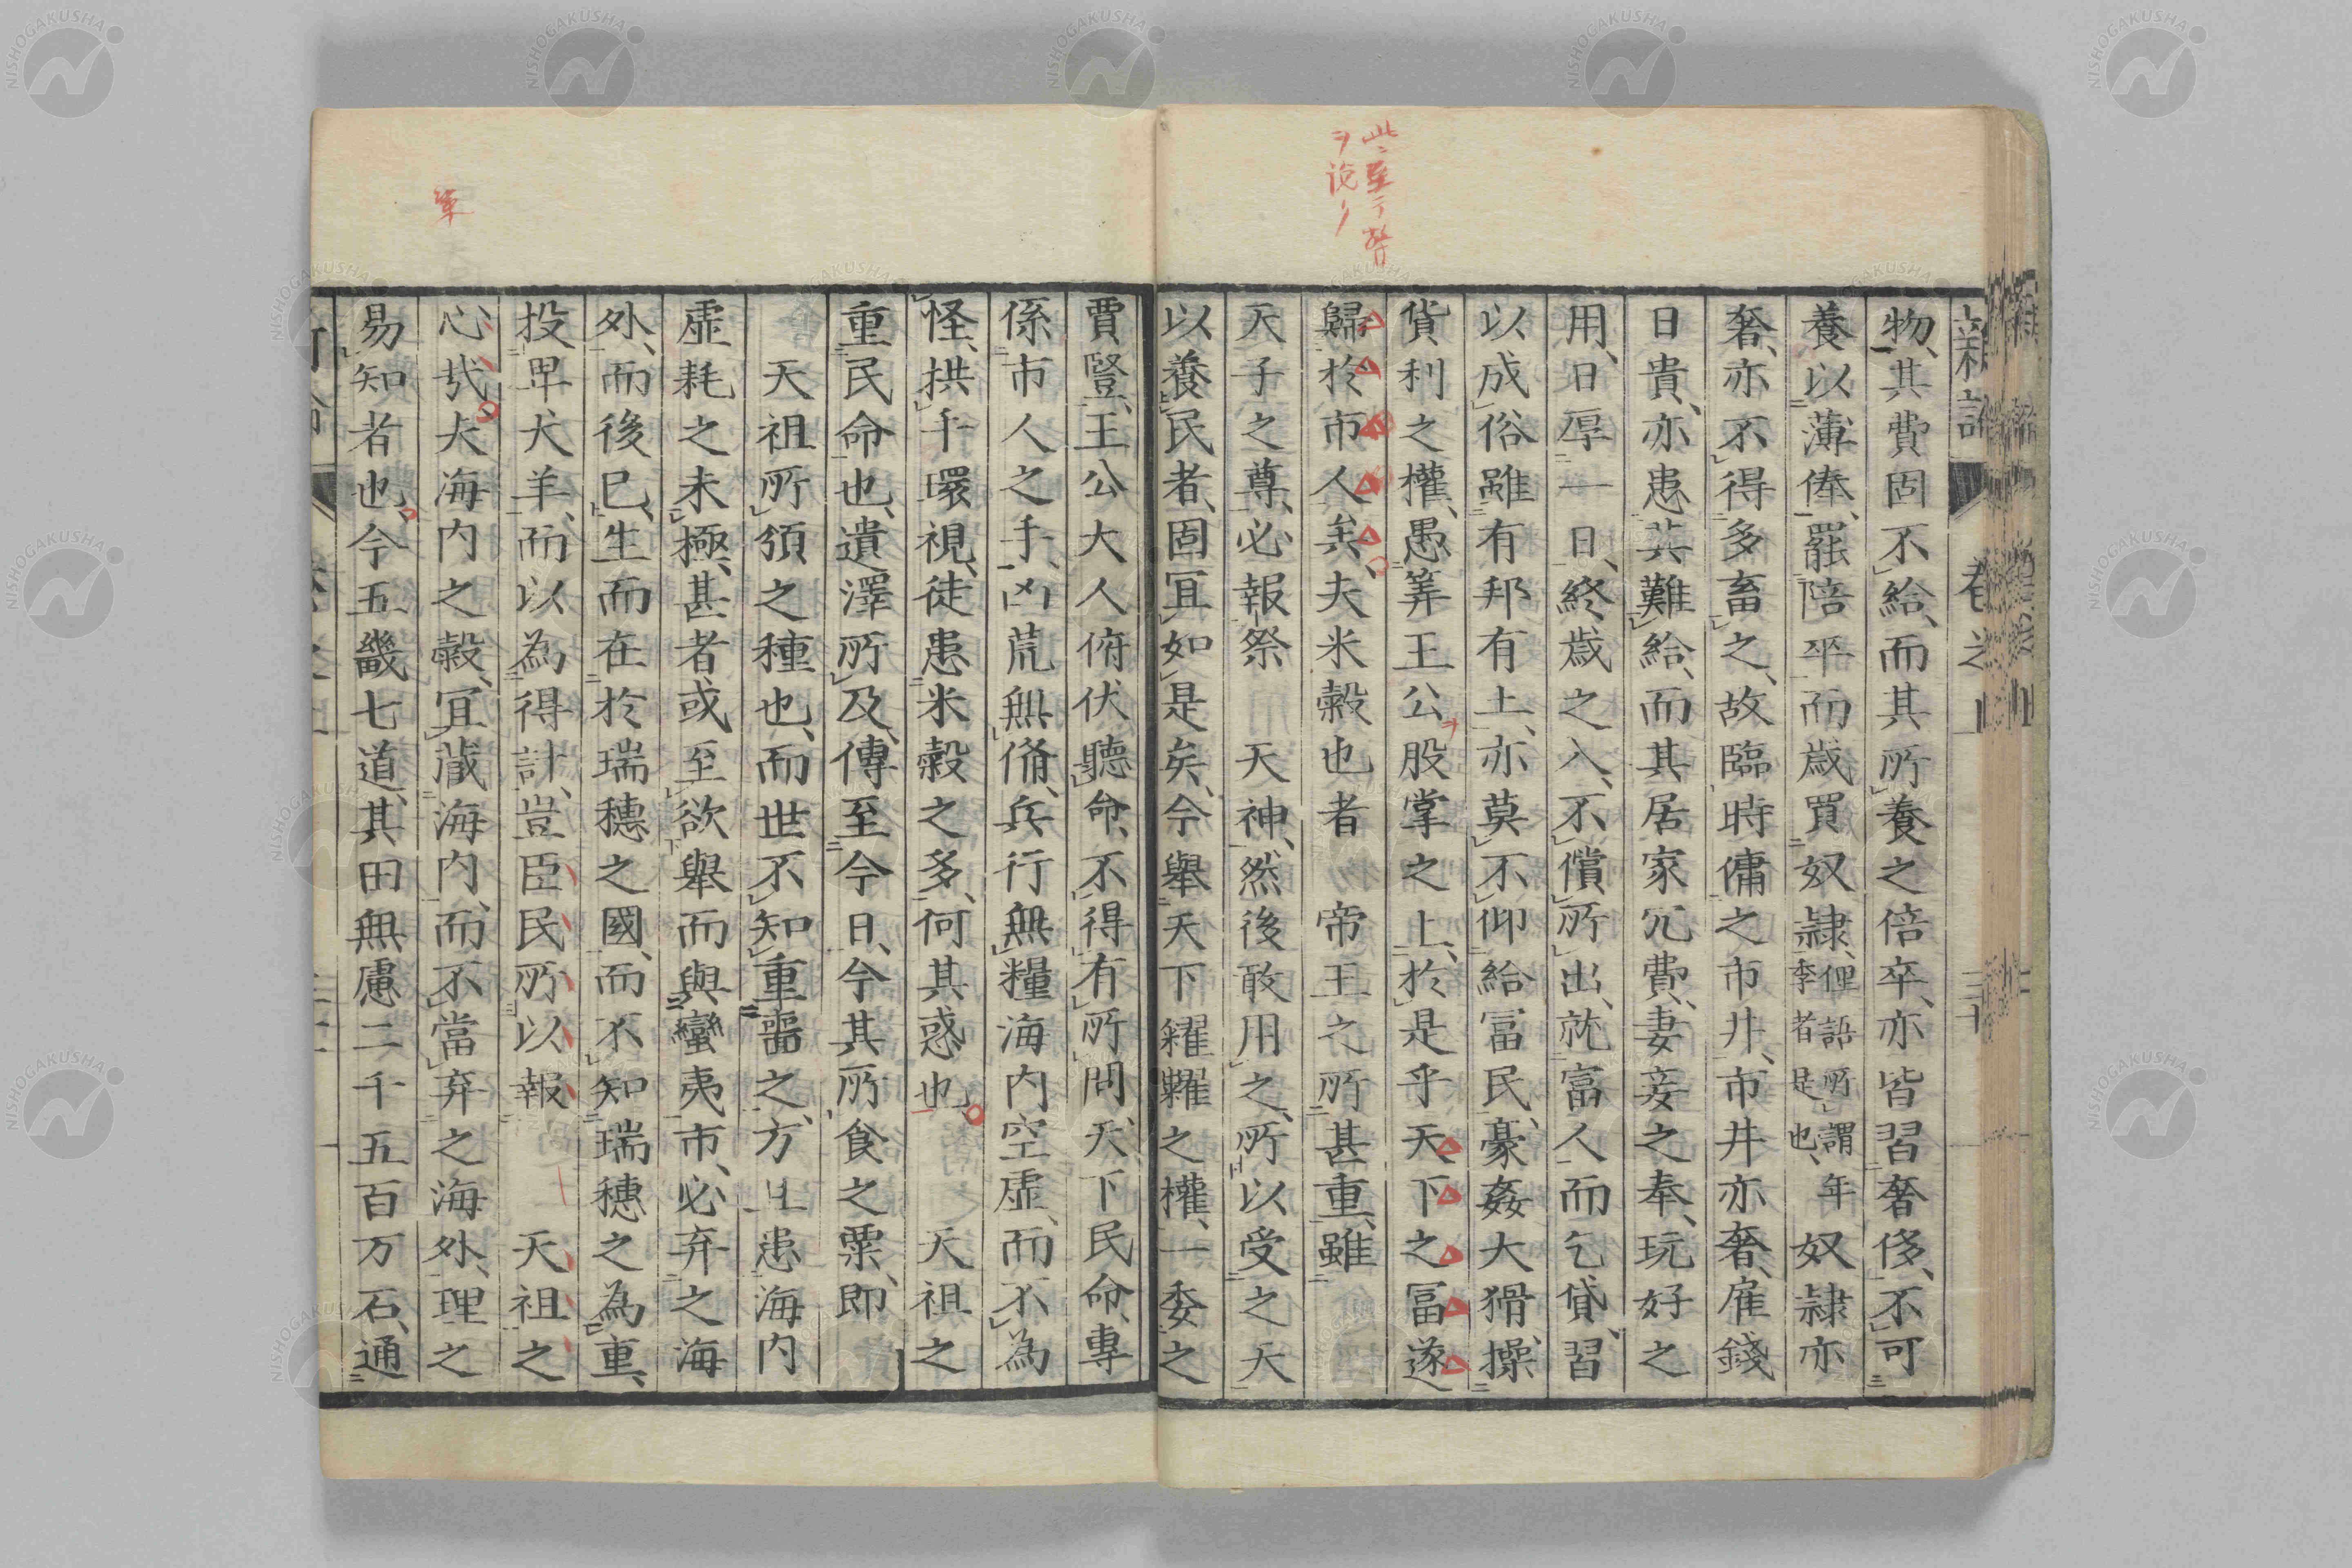 新論
卷之上
三十
物、其費固不給、而其所養之倍卒、亦皆習奢侈、不可
養以薄俸、罷陪卒而歲買奴隸、俚語所謂年季者是也、奴隸亦
奢、亦不得多畜之、故臨時傭之市井、市井亦奢、雇錢
日貴、亦患其難給、而其居家冗費、妻妾之奉、玩好之
用、日厚一日、終歲之入、不償所出、就富人而乞貸、習
以成俗雖有邦有土、亦莫不仰給富民、豪姦大猾、操
貨利之權、愚筭王公股掌之上、於是乎天下之冨遂
歸於市人矣、夫米穀也者 帝王之所甚重、雖
天子之尊、必報祭 天神、然後敢用之、所以受之天
以養民者、固宜如是矣、今舉天下糴糶之權、一委之
賈豎、王公大人俯伏聽命、不得有所問、天下民命、專
係市人之手、凶荒無備、兵行無糧海内空虛、而不為
怪、拱手環視、徒患米穀之多、何其惑也 天祖之
重民命也、遺澤所及、傳至今日、今其所食之粟、即
天祖所頒之種也、而世不知重嗇之、方且患海内
虛耗之未極、甚者或至欲舉而與蠻夷市、必弃之海
外、而後已、生而在於瑞穗之國、而不知瑞穗之為重、
投畀犬羊、而以為得計、豈臣民所以報 天祖之
心哉、夫海内之穀、宜藏海内、而不當弃之海外、理之
易知者也、今五畿七道、其田無慮二千五百万石、通